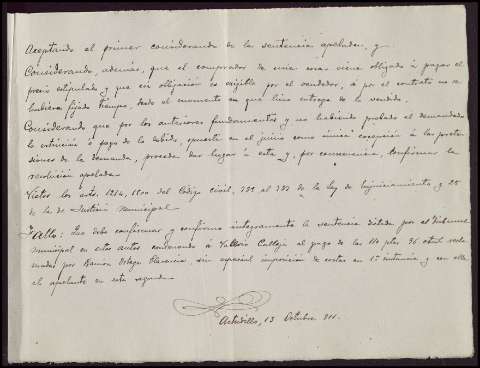 Aceptando el primer considerando de la sentencia apelada, y
Considerando, además, que el comprador de una cosa viene obligado á pagar el
precio estipulado y que esa obligación es exigible por el vendedor, si por el contrato no se
hubiera fijado tiempo, desde el momento en que hizo entrega de lo vendido.
Considerando que por los anteriores fundamentos y no habiendo probado el demandado
la extinción ó pago de la deuda, opuesta en el juicio como única excepción á las preten-
siones de la demanda, procede dar lugar á esta y, por consecuencia, confirmar la
resolución apelada.
Vistos los arts. 1214, 1500 del Código civil, de la ley de Enjuiciamiento y 25
de la de Justicia Municipal
Fallo: Que debo confirmar y confirmo integramente la sentencia dictada por el tribunal
municipal en estos autos condenando á Calleja al pago de las ptas 36 recla-
madas por Ramón Ortega Plasencia, sin especial imposición de costas en 1ª instancia y con ellas
al apelante en esta segunda.
Astudillo, 13 Octubre 911.